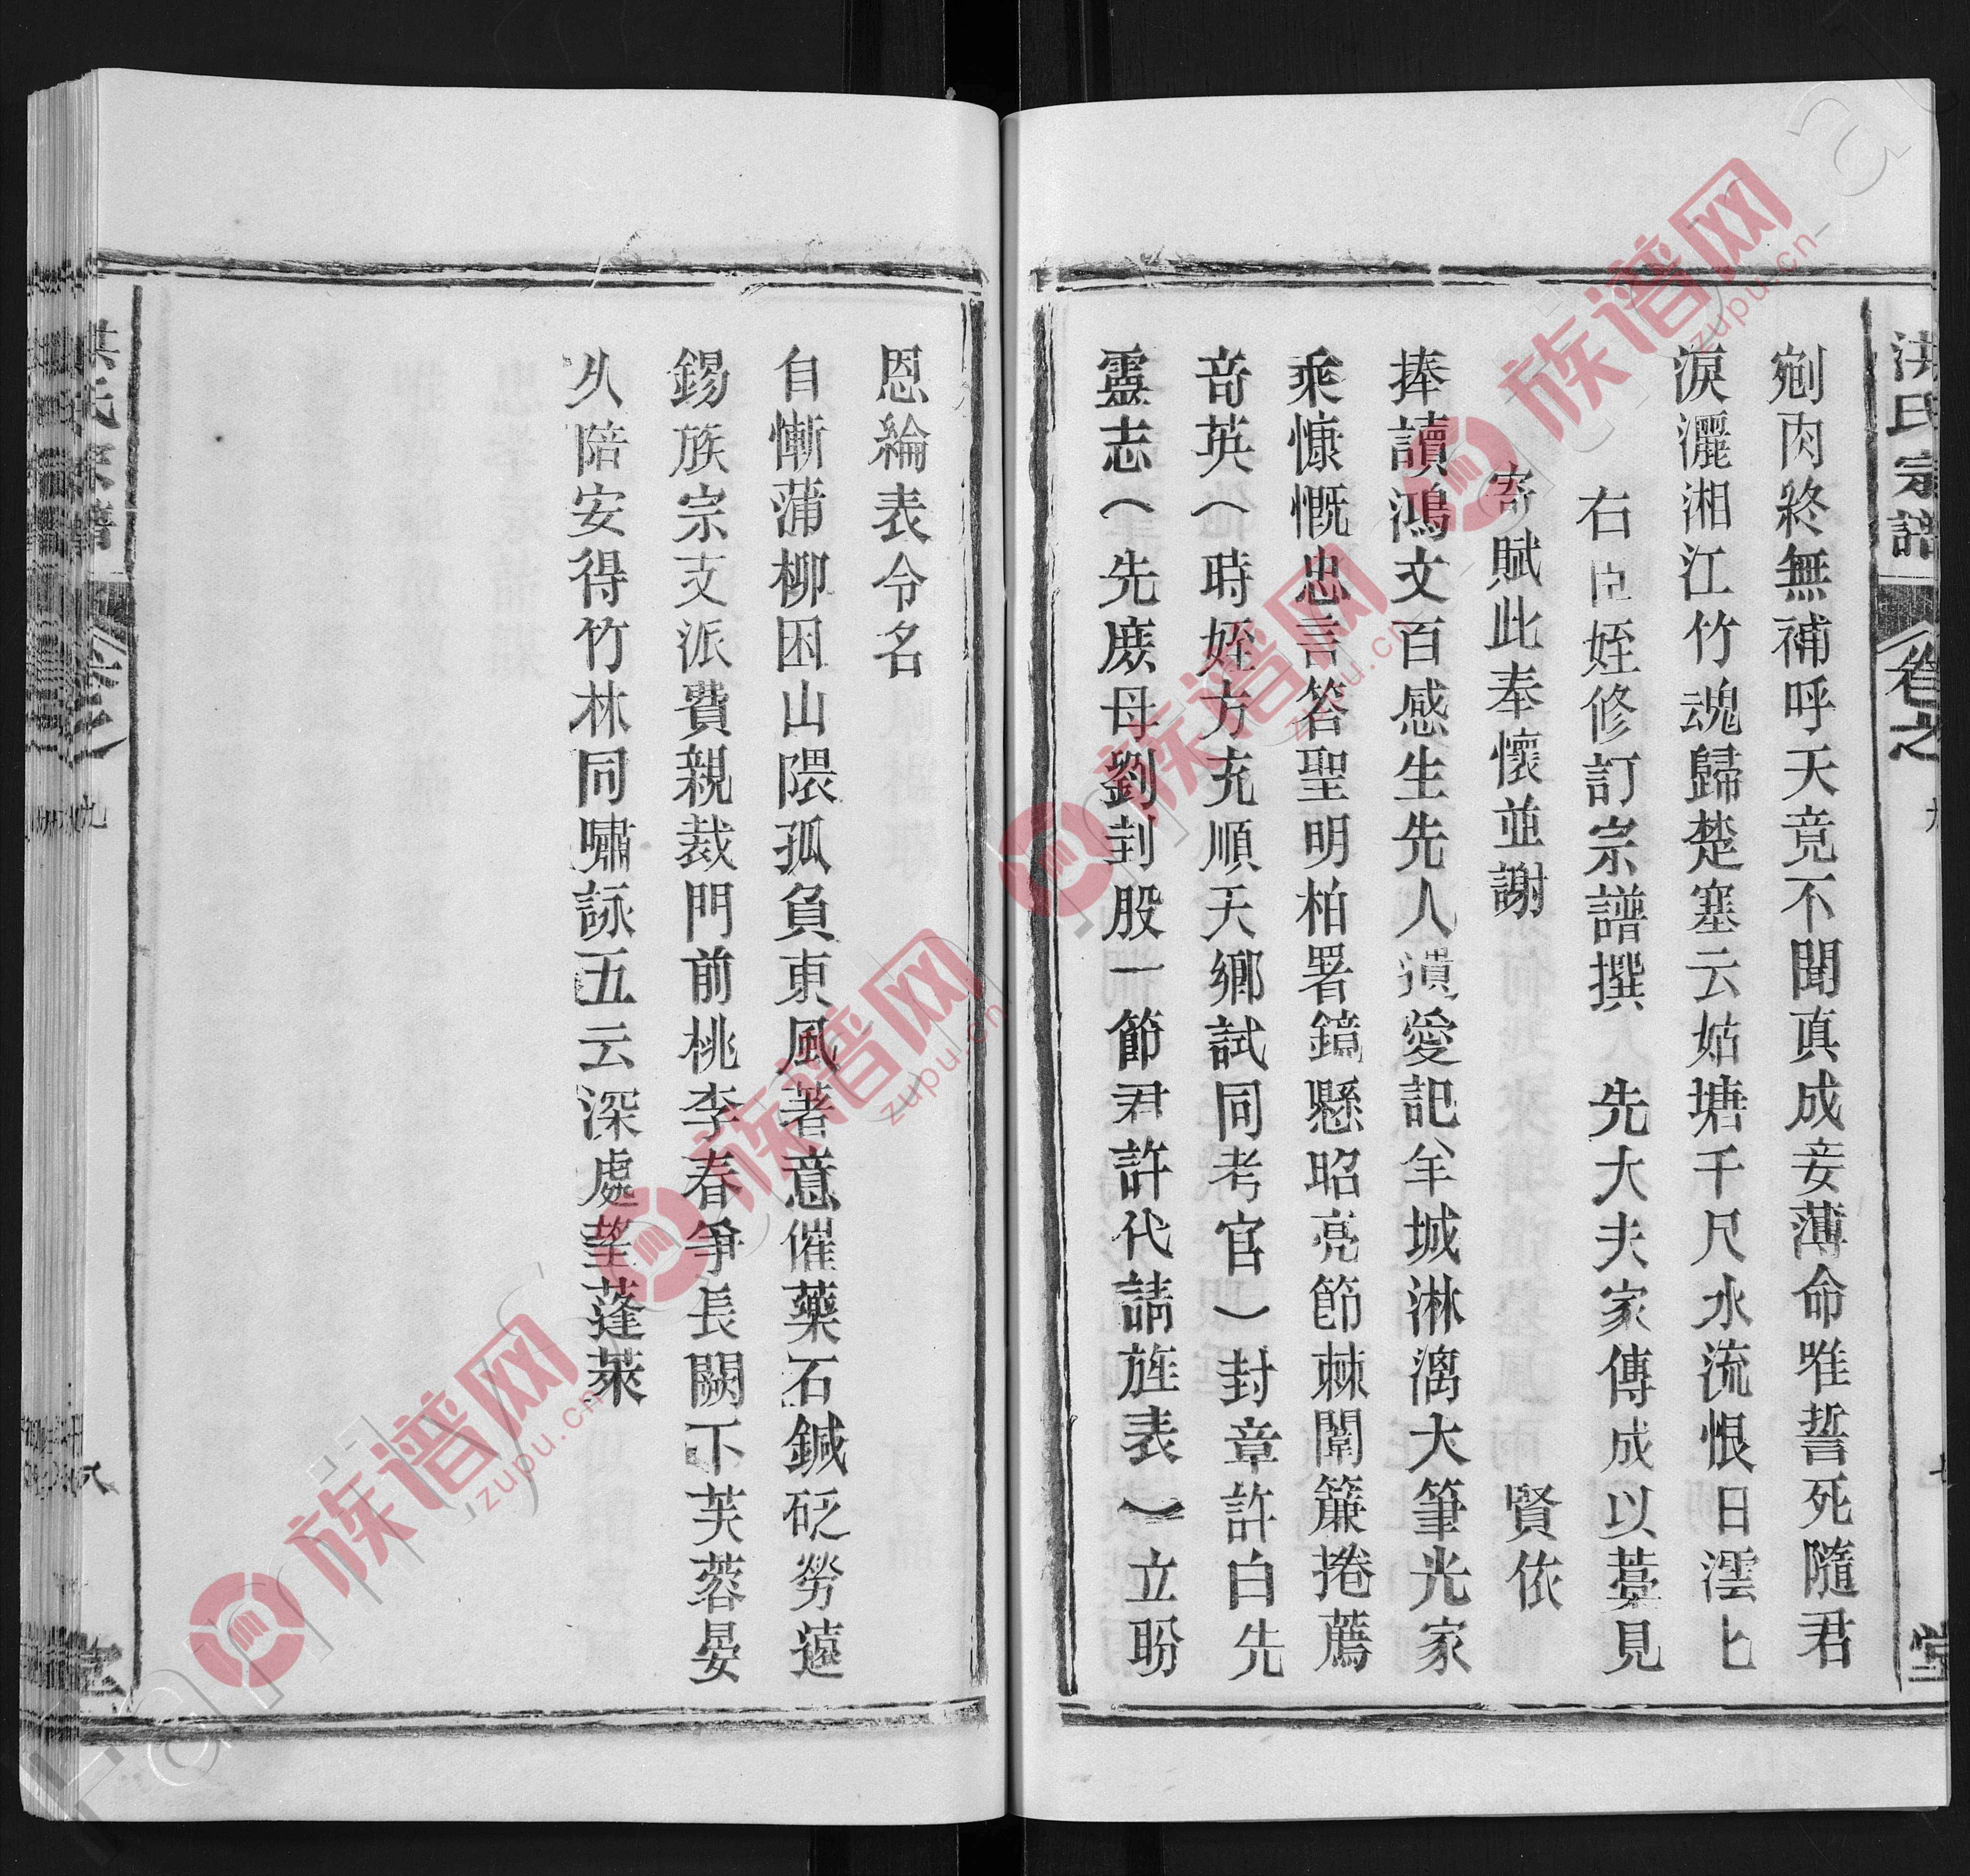 洪氏宗譜
卷之
剜肉終無補呼天竟不聞真成妾薄命唯誓死隨君
淚灑湘江竹魂歸楚塞云姑塘千尺水流恨日澐匕
右臣姪修訂宗譜撰　先大夫家傳成以藁見
寄賦此奉懷並謝　賢依
捧讀鴻文百感生先人遺愛記羊城淋漓大筆光家
乘慷慨忠言答聖明柏署鏡懸昭亮節棘闈簾捲薦
奇英（時姪方充順天鄉試同考官）封章許白先
靈志（先庶母劉封股一節君許代請旌表）立盼
恩綸表令名
自慚蒲柳困山隈孤負東風著意催藥石鍼砭勞遠
錫族宗支派費親裁門前桃李春爭長闕下芙蓉晏
久陪安得竹林同嘯詠五云深處望蓬萊
洪氏宗譜
卷之
九
八
堂
族谱网
zupu.cn
族谱网
zupu.cn
族谱网
zupu.cn
族谱网
zupu.cn